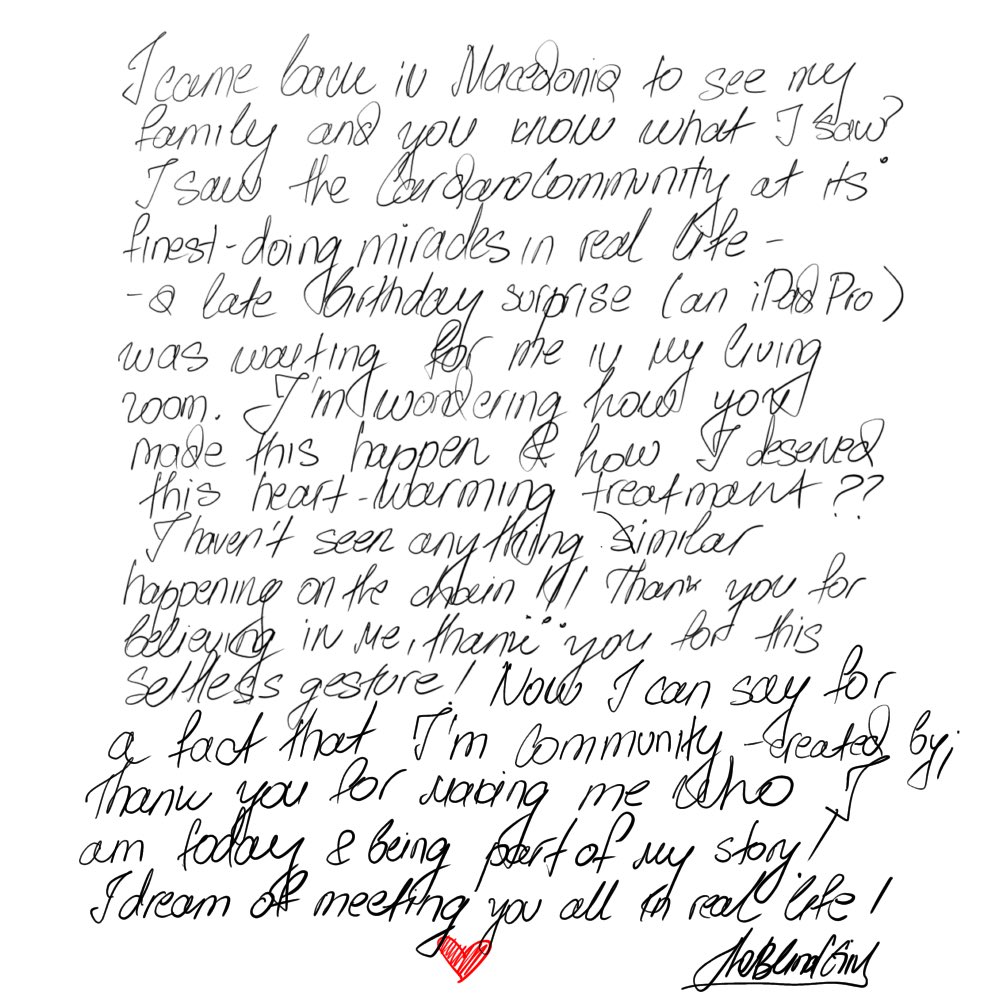 I came back in Macedonia to see my
family and you know what I saw?
I saw the CardanoCommunity at its
finest - doing miracles in real life -
- a late Birthday surprise (an iPad Pro)
was waiting for me in my living
room. I'm wondering how you
made this happen & how I deserved
this heart-warming treatment ??
I haven't seen anything similar
happening on the chain !!! Thank you for
believing in me, thank you for this
selfless gesture! Now I can say for
a fact that I'm community-created by;
Thank you for making me who I
am today & being part of my story!
I dream of meeting you all in real life!